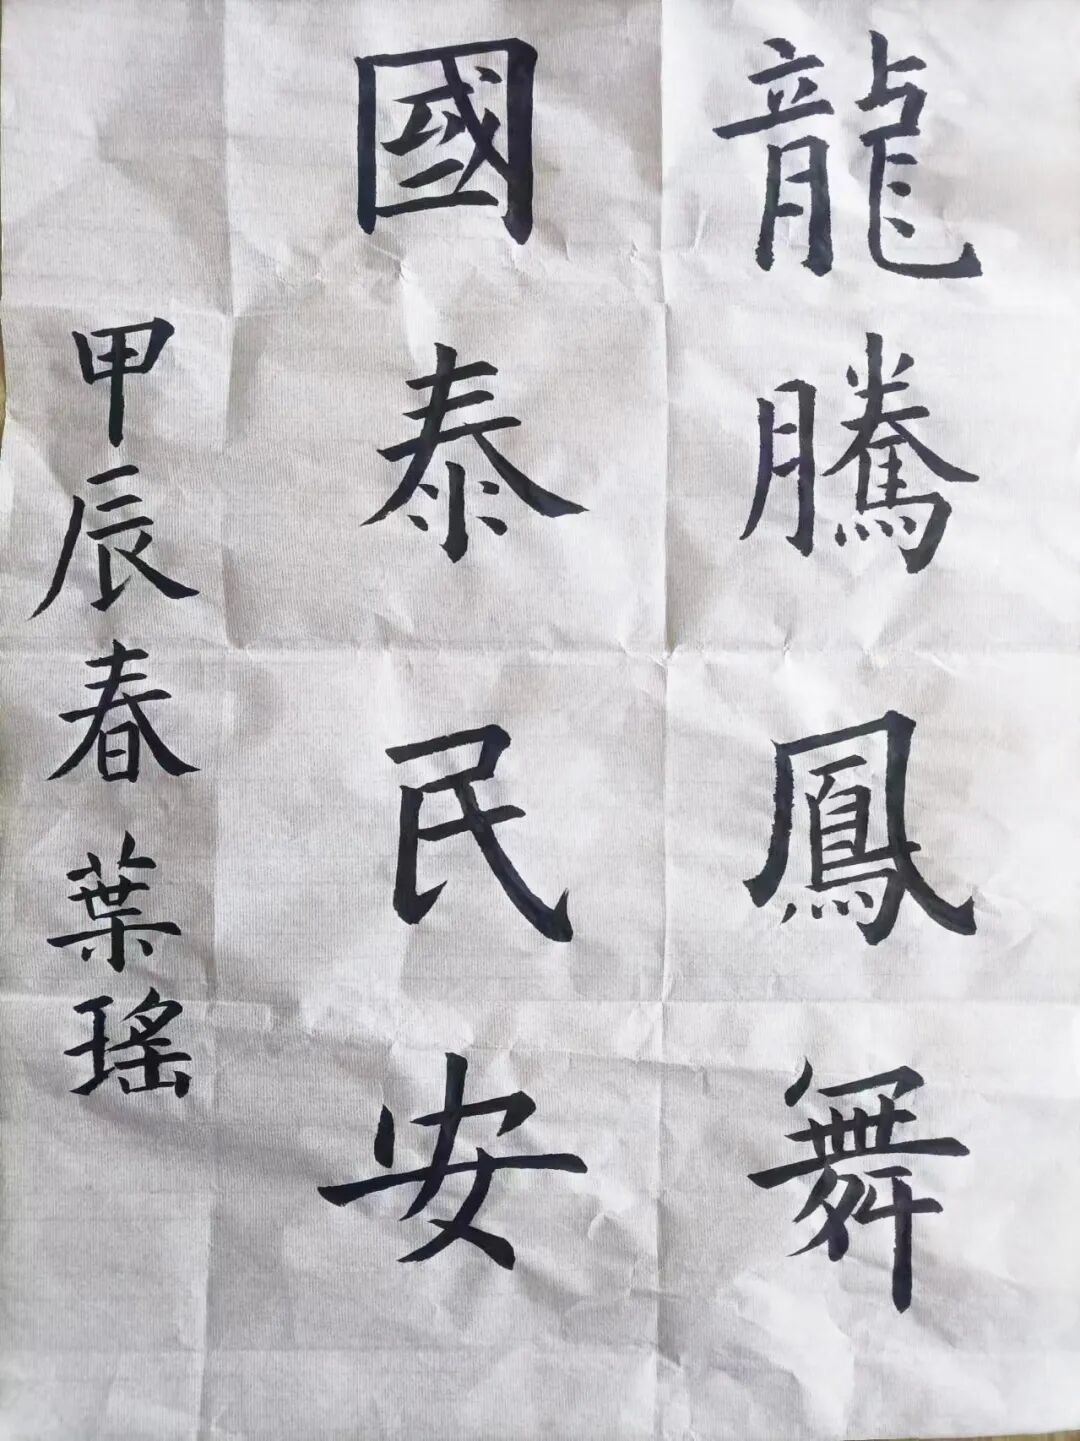 龍騰鳳舞
國泰民安
甲辰春 葉瑤